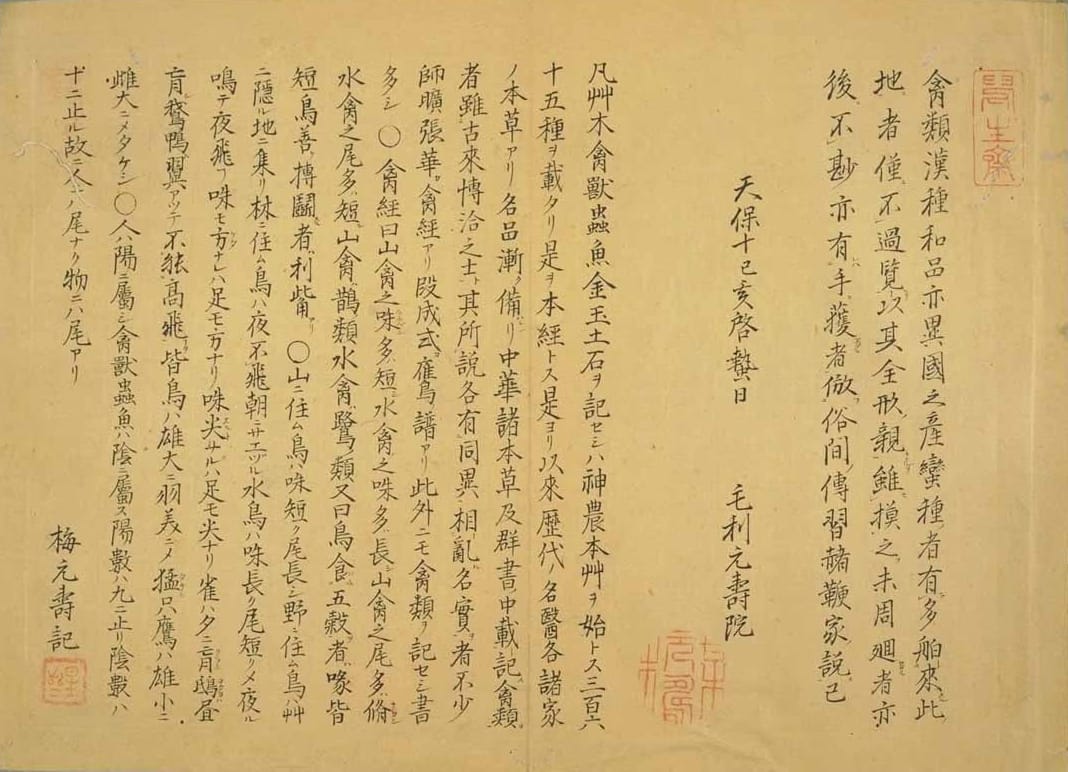 禽類漢種和品亦異國之産蠻種者有多舶來此
地者僅不過覽以其全形親雖摸之未周廻者亦
後不尠亦有手獲者倣俗間傳習赭鞭家説已
天保十己亥啓蟄日　毛利元壽院
凡艸木禽獸蟲魚金玉土石ヲ記セシハ神農本艸ヲ始トス三百六
十五種ヲ載タリ是ヲ本經トス是ヨリ以來歴代ノ名醫各諸家
ノ本草アリ名品漸ク備リ中華諸本草及群書中載記禽類
者雖古來博洽之士其所説各有同異相亂名實者不少
師曠張華禽經アリ段成式隺鳥譜アリ此外ニモ禽類ヲ記セシ書
多シ〇禽經曰山禽之咮多短水禽之咮多長山禽之尾多脩
水禽之尾多短山禽鵲類水禽鷺類又曰鳥食五穀者喙皆
短鳥善搏鬪者利觜〇山ニ住ム鳥ハ咮短ク尾長シ野ニ住ム鳥ハ艸
ニ隱ル地ニ集リ林ニ住ム鳥ハ夜不飛朝ニサエツル水鳥ハ咮長ク尾短クメ夜ル
鳴テ夜飛フ咮モ方ナレハ足モ方ナリ咮尖サルハ足モ尖ナリ雀ハタニ盲鴟昼
盲鶩鴨翼アツテ不能高飛皆鳥ハ雄大ニ羽美ニメ猛只鷹ハ雄小ニ
雌大ニメタケシ〇人ハ陽ニ屬シ禽獸蟲魚ハ陰ニ屬ス陽數ハ九ニ止リ陰數ハ
十ニ止ル故ニ人ハ尾ナク物ニハ尾アリ
梅元壽記